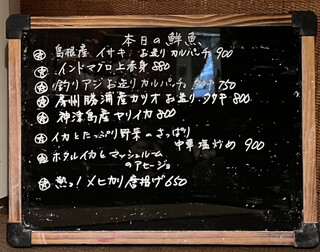 本日の鮮魚
島根産 イサキ お造り カルパッチ 900
インドマグロ上赤身 880
釣りアジ お造り カルパッチョ タタキ 750
房州勝浦産カツオ お造り タタキ 800
神津島産ヤリイカ 800
イカとたっぷり野菜のさっぱり
中華塩炒め 900
ホタルイカとマッシュルーム
のアヒージョ
熱っ!メヒカリ唐揚げ 650